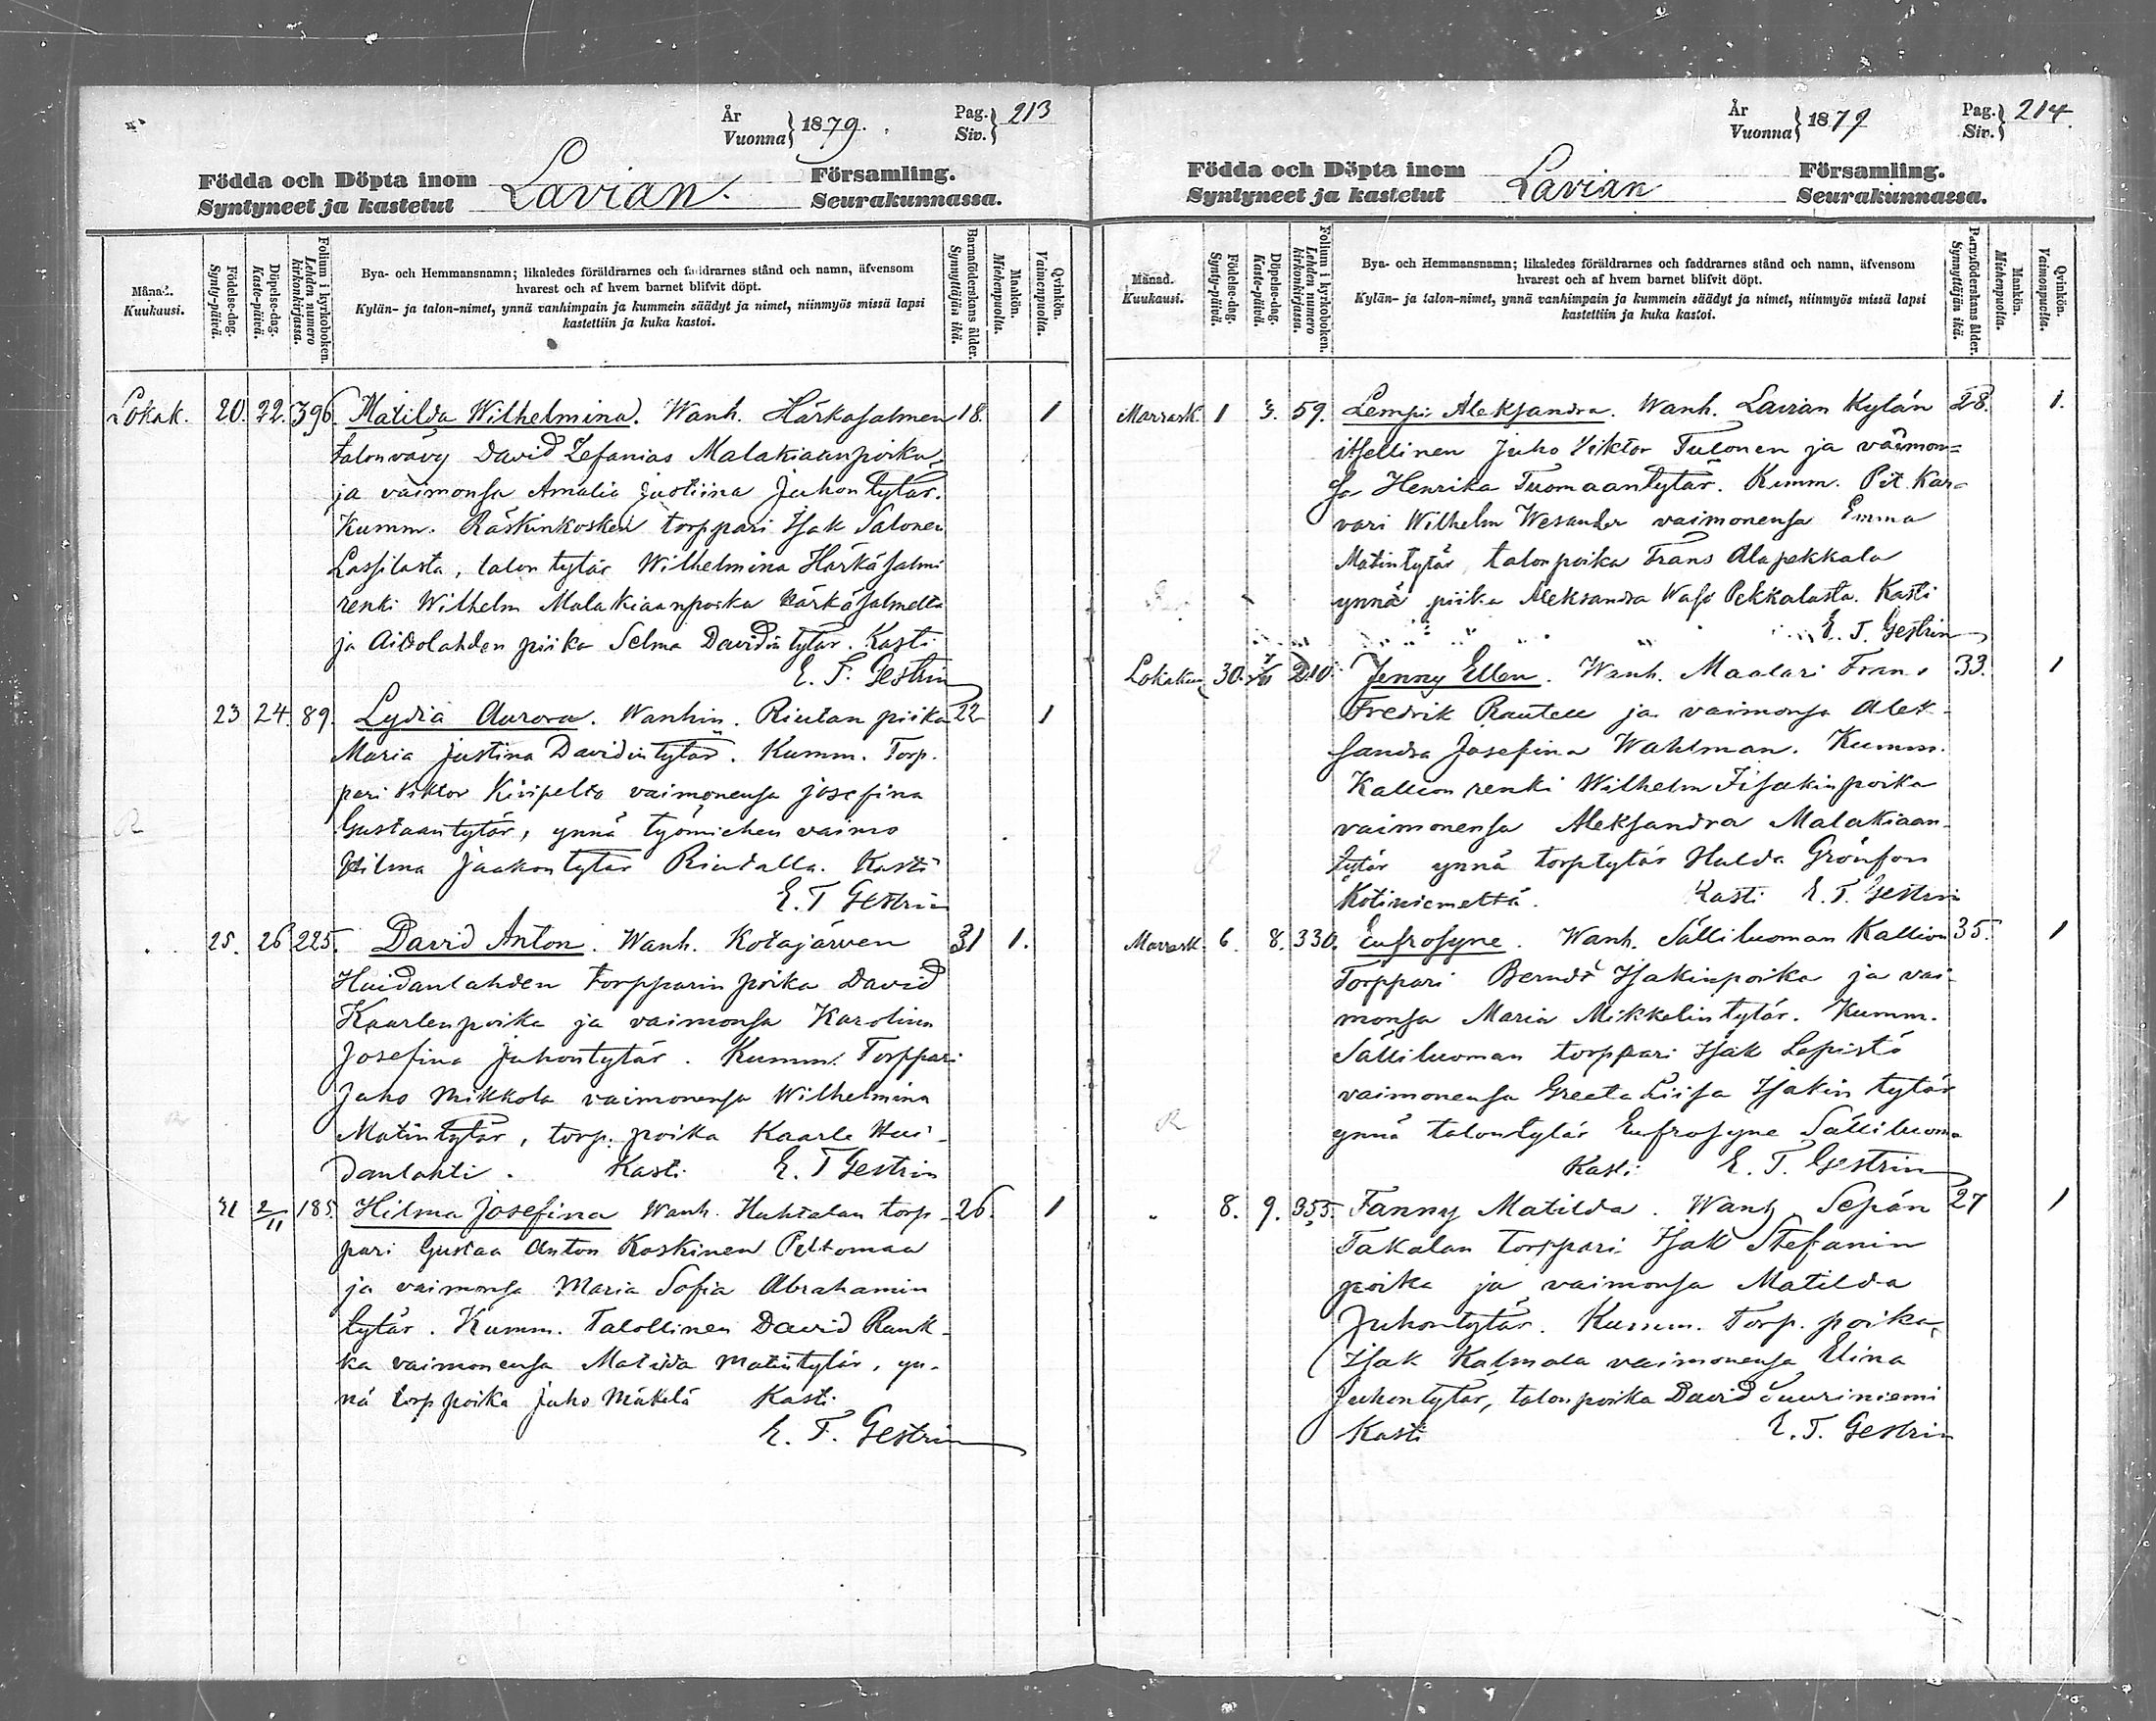 År
Vuonna } 1879.
Pag.
Siv. } 213
Födda och Döpta inom
Syntyneet ja kastetut
Lavian.
Församling.
Seurakunnassa.
Månad.
Kuukausi.
Födelse-dag.
Synty-päivä.
Döpelse-dag.
Kaste-päivä.
Folium i kyrkoboken.
Lehden numero kirkonkirjassa.
Bya- och Hemmansnamn; likaledes föräldrarnes och faddrarnes stånd och namn, äfvensom
hvarest och af hvem barnet blifvit döpt.
Kylän- ja talon-nimet, ynnä vanhimpain ja kummein säädyt ja nimet, niinmyös missä lapsi
kastettiin ja kuka kastoi.
Barnaföderskans ålder.
Synnyttäjän ikä.
Mankön.
Miehenpuolta.
Qvinkön.
Vaimonpuolta.
Lokak. 20. 22. 396. Matilda Wilhelmina. Wanh. Härkäsalmen 18. 1
talonvävy David Zefanias Malakiaanpoika
ja vaimonsa Amalia Justiina Juhontytär.
Kumm. Räskinkosken torppari Isak Salonen
Lassilasta, talon tytär Wilhelmina Härkäsalmi
renki Wilhelm Malakiaanpoika Härkäsalmelta
ja Aittolahden piika Selma Davidin tytär. Kasti
E. T. Gestrin
23 24. 89. Lydia Aurora. Wanhin. Riutan piika 22 1
Maria Justina Davidintytär. Kumm. Torp.
pari Viktor Kivipelto vaimonensa Josefina
Gustaantytär, ynnä työmiehen vaimo
Hilma Jaakontytär Riutalla. Kasti
E. T Gestrin
25. 26 225. David Anton. Wanh. Kotajärven 31 1.
Huidanlahden torpparin poika David
Kaarlenpoika ja vaimonsa Karolina
Josefina Juhontytär. Kumm. Torppari
Juho Mikkola vaimonensa Wilhelmina
Matintytär, torp. poika Kaarle Hui-
danlahti. Kasti E. T Gestrin
31 2/11 185. Hilma Josefina Wanh. Huhtalan torp- 26. 1
pari Gustaa Anton Koskinen Peltomaa
ja vaimonsa Maria Sofia Abrahamin
tytär. Kumm. Talollinen David Rank-
ka vaimonensa Matilda Matintytär, yn-
nä torp poika Juho Mäkelä Kasti
E. T. Gestrin
År
Vuonna } 1879
Pag.
Siv. } 214.
Födda och Döpta inom
Syntyneet ja kastetut
Lavian
Församling.
Seurakunnassa.
Månad.
Kuukausi.
Födelse-dag.
Synty-päivä.
Döpelse-dag.
Kaste-päivä.
Folium i kyrkoboken.
Lehden numero kirkonkirjassa.
Bya- och Hemmansnamn; likaledes föräldrarnes och faddrarnes stånd och namn, äfvensom
hvarest och af hvem barnet blifvit döpt.
Kylän- ja talon-nimet, ynnä vanhimpain ja kummein säädyt ja nimet, niinmyös missä lapsi
kastettiin ja kuka kastoi.
Barnsföderskans ålder.
Synnyttäjän ikä.
Mankön.
Miehenpuolta.
Qvinkön.
Vaimonpuolta.
Marrask. 1 3. 59. Lempi Aleksandra. Wanh. Lavian Kylän 28. 1.
itsellinen Juho Viktor Tulonen ja vaimon-
sa Henrika Tuomaantytär. Kumm. Pit. Kar-
vari Wilhelm Wesander vaimonensa Emma
Matintytär, talonpoika Frans Alapekkala
ynnä piika Aleksandra Pekkalasta. Kasti
E. T. Gestrin
Lokakuu 30. 210. Jenny Ellen. Wanh. Maalari Frans 33. 1
Fredrik Rautell ja vaimonsa Alek-
sandra Josefina Wahlman. Kumm.
Kallion renki Wilhelm Iisakinpoika
vaimonensa Aleksandra Malakiaan-
tytär ynnä torptytär Hulda Grönfors
Kotiniemeltä. Kasti E. T. Gestrin
Marrask. 6. 8. 330. Eufrosyne. Wanh. Sälliluoman Kallion 35. 1
Torppari Berndt Isakinpoika ja vai-
monsa Maria Mikkelintytär. Kumm.
Sälliluoman torppari Isak Lepistö
vaimonensa Greeta Liisa Isakin tytär
ynnä talontytär Eufrosyne Sälliluoma
Kasti E. T. Gestrin
" 8. 9. 355. Fanny Matilda. Wanh. Sepän 27 1
Takalan torppari Isak Stefanin
poika ja vaimonsa Matilda
Juhontytär. Kumm. Torp. poika
Isak Kalmala vaimonensa Elina
Juhontytär, talonpoika David Suuriniemi
Kasti E. T. Gestrin